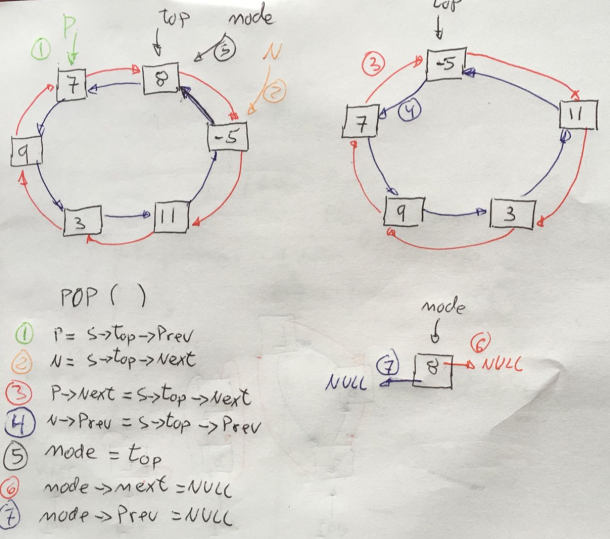 P top node top
① 7 8 ⑤ N ③ -5
②
9 -5 7 ④ 11
3 11 9 3
POP ( )
① P = S→top→Prev
② N = S→top→Next
③ P→Next = S→top→Next
④ N→Prev = S→top→Prev
⑤ node = top
⑥ node→next = NULL
⑦ node→Prev = NULL
node
⑥
⑦ 8 NULL
NULL